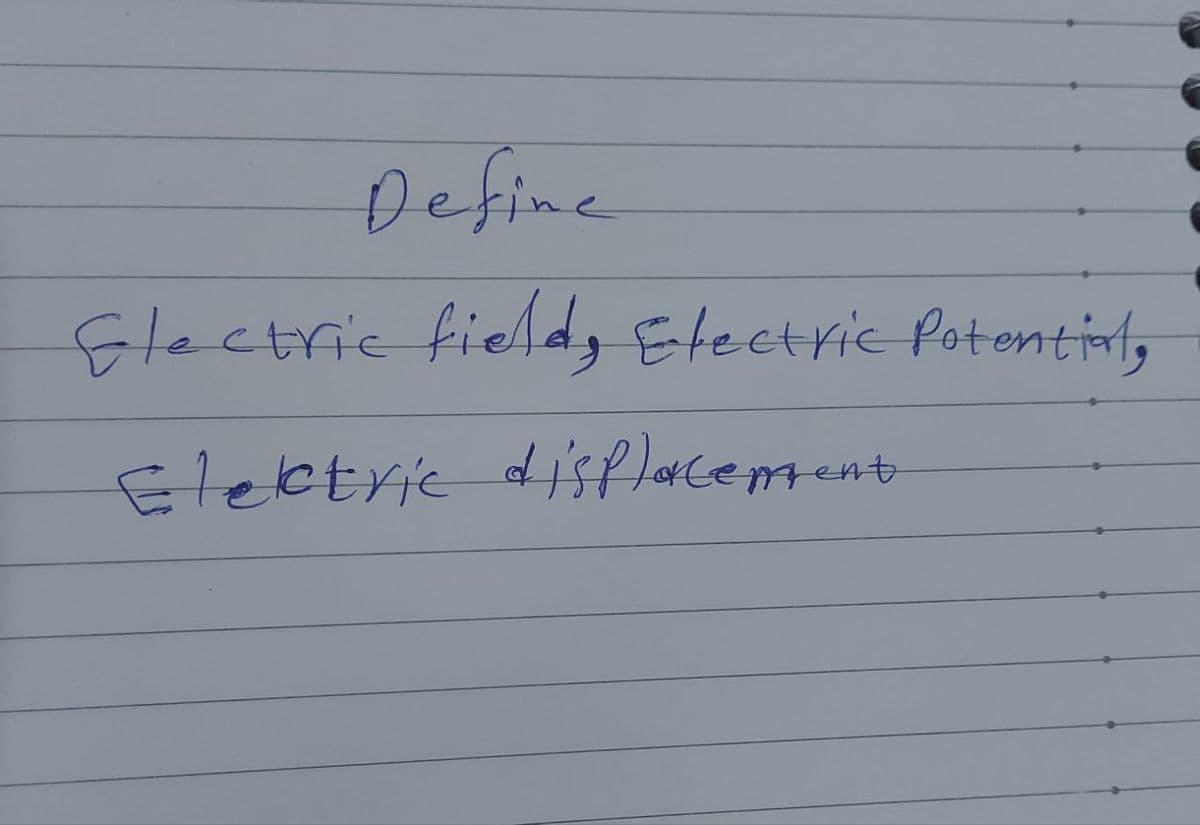 Define
Electric field, Electric Potential,
Elektric displacement